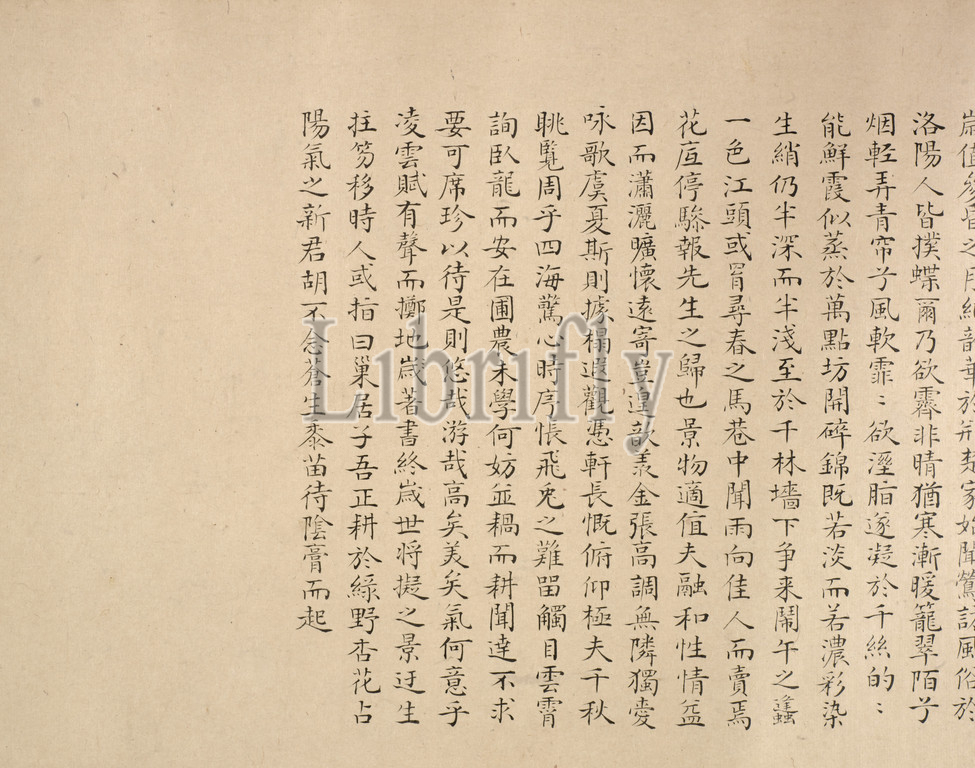 歲值多皆之月紀韶華於荊楚家始聞鶯訪風俗於
洛陽人皆撲蝶爾乃欲霽非晴猶寒漸暖籠翠陌兮
烟輕弄青帘兮風軟霏〻欲溼脂遂凝於千絲的〻
能鮮霞似蒸於萬點坊開碎錦既若淡而若濃彩染
生綃仍半深而半淺至於千林墻下爭来鬧午之蠭
一色江頭或罥尋春之馬巷中聞雨向佳人而賣焉
花底停驂報先生之歸也景物適值夫融和性情益
因而瀟灑曠懷遠寄豈遑歆羨金張高調無隣獨愛
咏歌虞夏斯則據榻遐觀憑軒長慨俯仰極夫千秋
眺覽周乎四海驚心時序悵飛兔之難留觸目雲霄
詢臥龍而安在圃農未學何妨並耦而耕聞達不求
要可席珍以待是則悠哉游哉高矣美矣氣何意乎
凌雲賦有聲而擲地歲著書終歲世將擬之景迂生
拄笏移時人或指曰巢居子吾正耕於綠野杏花占
陽氣之新君胡不念蒼生黍苗待陰膏而起
Librifly